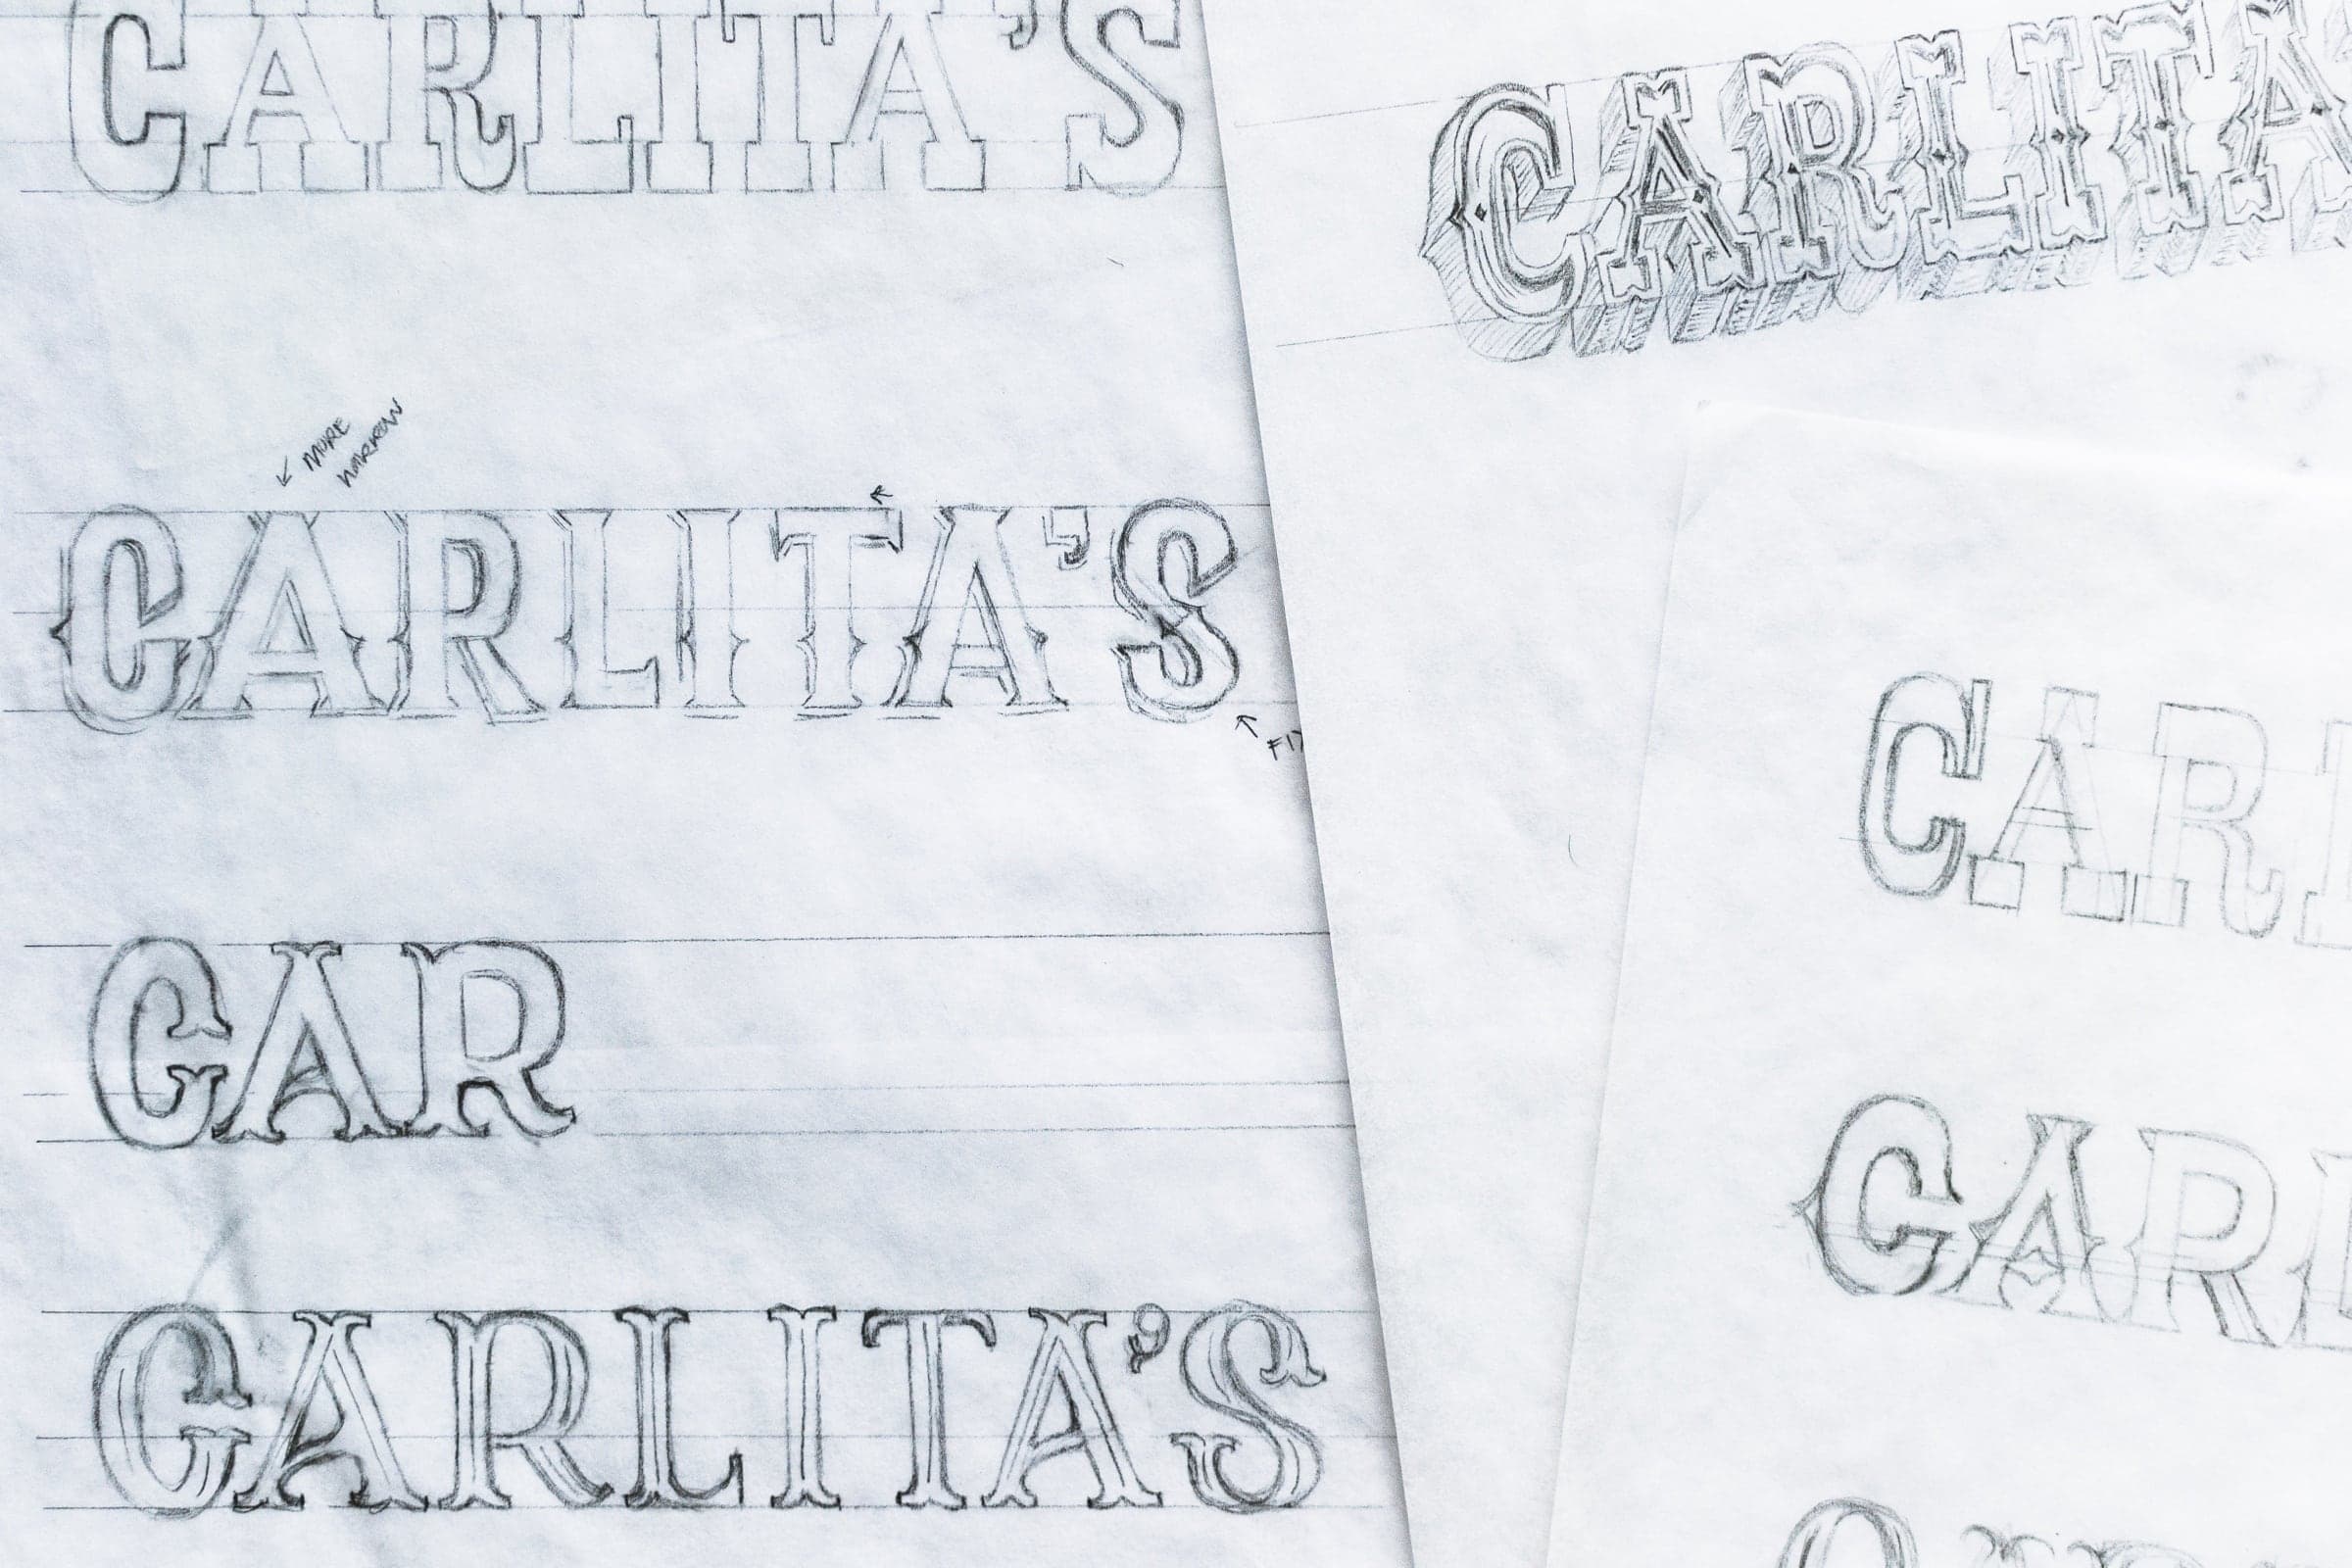 CARLITA'S
MORE
NARROW
CARLITA'S
CAR
CARLITA'S
CARLITA
CARL
CARL